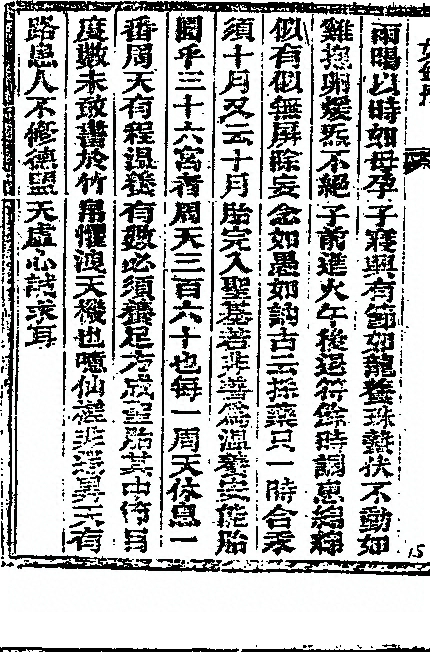 雨暘以時如母孕子寢興有節如龍養珠蟄伏不動如
雞抱卵煖炁不絕子前進火午後退符餘時調息綿綿
似有似無屏除妄念如愚如訥古云採藥只一時合汞
須十月又云十月胎完入聖基若非善為溫養安能胎
圓乎三十六宮者周天三百六十也每一周天休息一
番周天有程溫養有數必須養足方成聖胎其中條目
度數未敢書於竹帛懼洩天機也噫仙程非遠昇天有
路患人不修德盟天虛心誠求耳
15